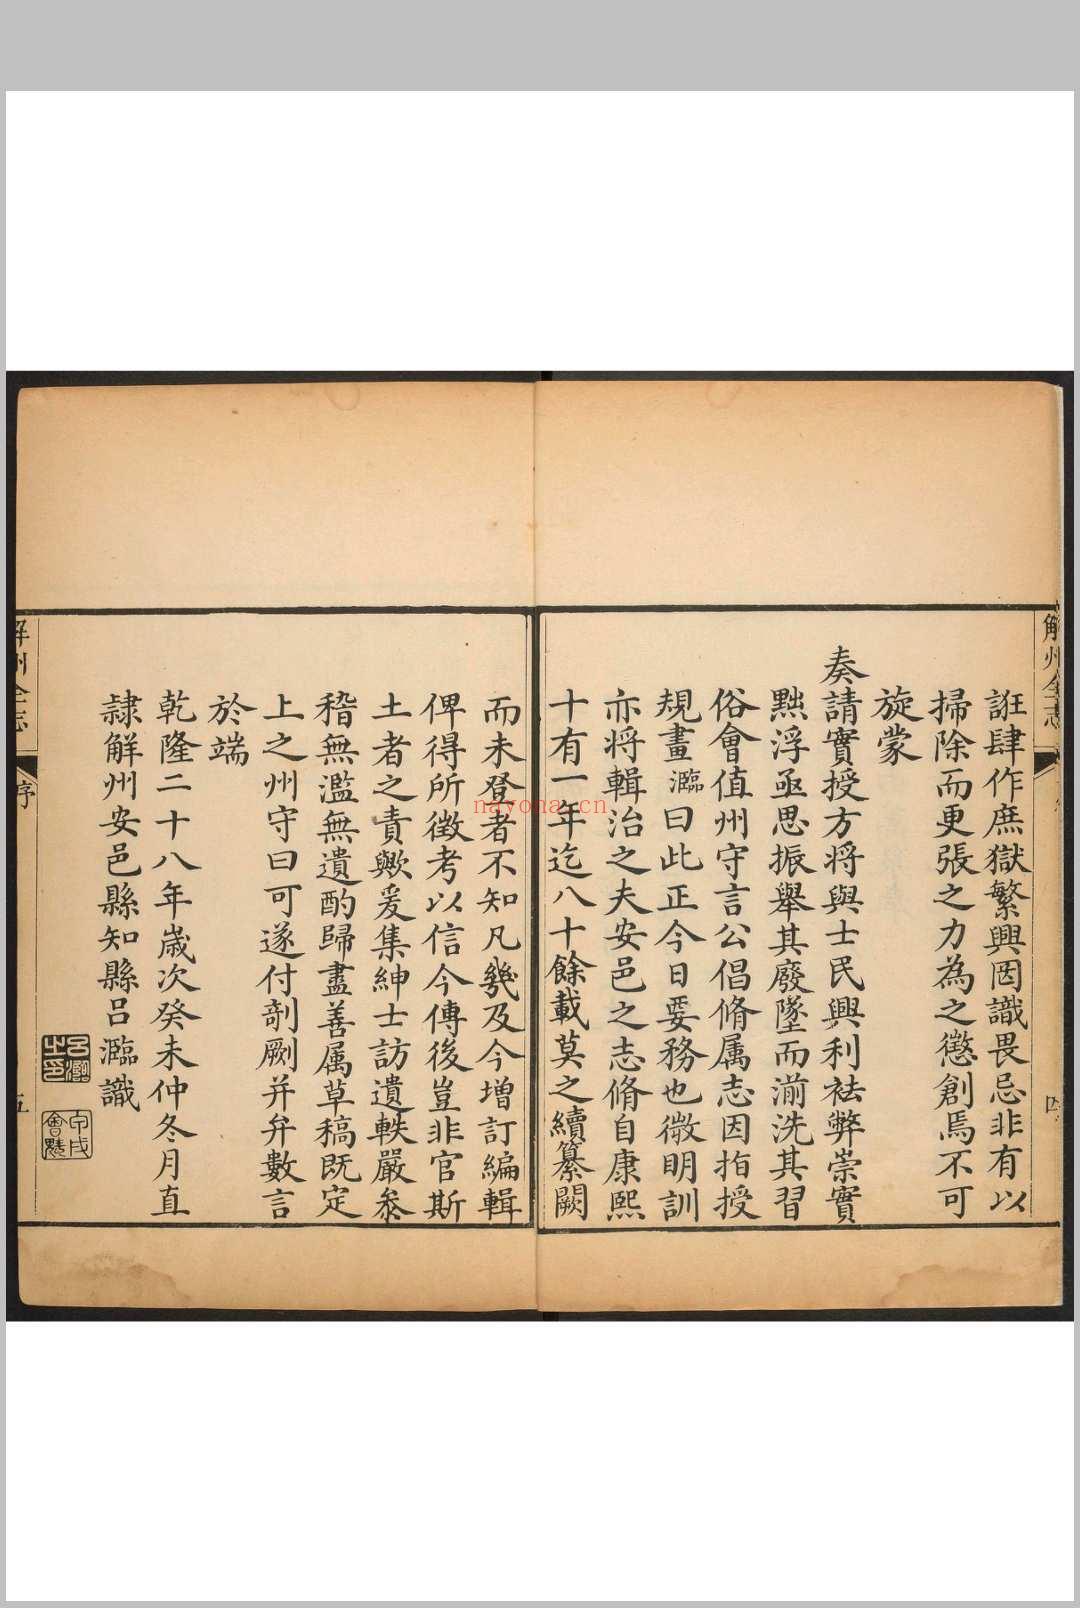 解州全志
四
誑肆作庶獄繁興因識畏忌非有以
掃除而更張之力為之懲創焉不可
旋蒙
奏請實授方將與士民興利袪弊崇實
黜浮亟思振舉其廢墜而湔洗其習
俗會值州守言公倡脩属志因指授
規畫灜曰此正今日要務也微明訓
亦将輯治之夫安邑之志脩自康熙
十有一年迄八十餘載莫之續纂闕
而未登者不知凡幾及今增訂編輯
俾得所徵考以信今傳後豈非官斯
土者之責歟爰集紳士訪遺軼嚴叅
稽無濫無遺酌歸盡善属草稿既定
上之州守曰可遂付剞劂并弁數言
於端
乾隆二十八年歲次癸未仲冬月直
隷解州安邑縣知縣吕灜識
吕灜之印
解州全志
序
五
nayona.cn